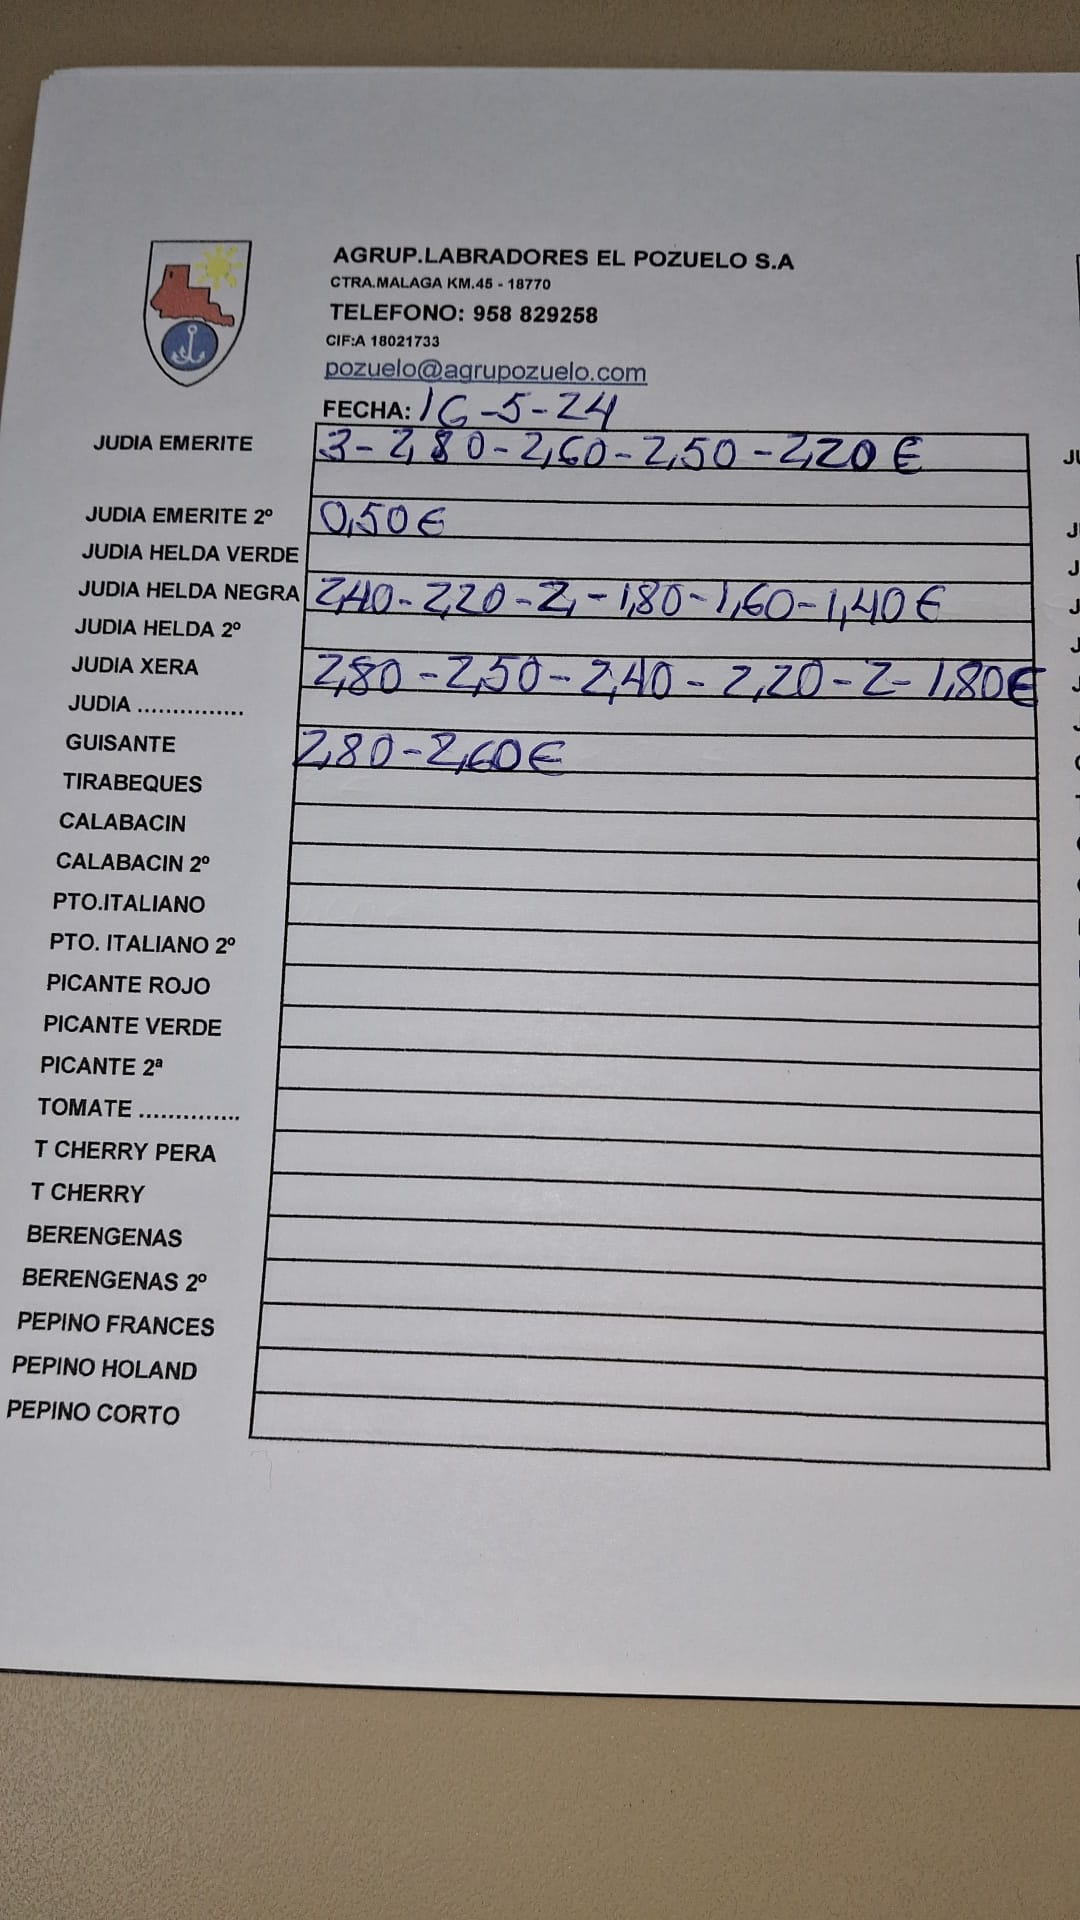 AGRUP.LABRADORES EL POZUELO S.A
CTRA.MALAGA KM.45 - 18770
TELEFONO: 958 829258
CIF:A 18021733
pozuelo@agrupozuelo.com
FECHA: 16-5-24
JUDIA EMERITE 3-2,80-2,60-2,50-2,20€
JUDIA EMERITE 2º 0,50€
JUDIA HELDA VERDE
JUDIA HELDA NEGRA 2,40-2,20-2,-1,80-1,60-1,40€
JUDIA HELDA 2º
JUDIA XERA 2,80-2,50-2,40-2,20-2-1,80€
JUDIA ...............
GUISANTE 2,80-2,60€
TIRABEQUES
CALABACIN
CALABACIN 2º
PTO.ITALIANO
PTO. ITALIANO 2º
PICANTE ROJO
PICANTE VERDE
PICANTE 2ª
TOMATE ..............
T CHERRY PERA
T CHERRY
BERENGENAS
BERENGENAS 2º
PEPINO FRANCES
PEPINO HOLAND
PEPINO CORTO